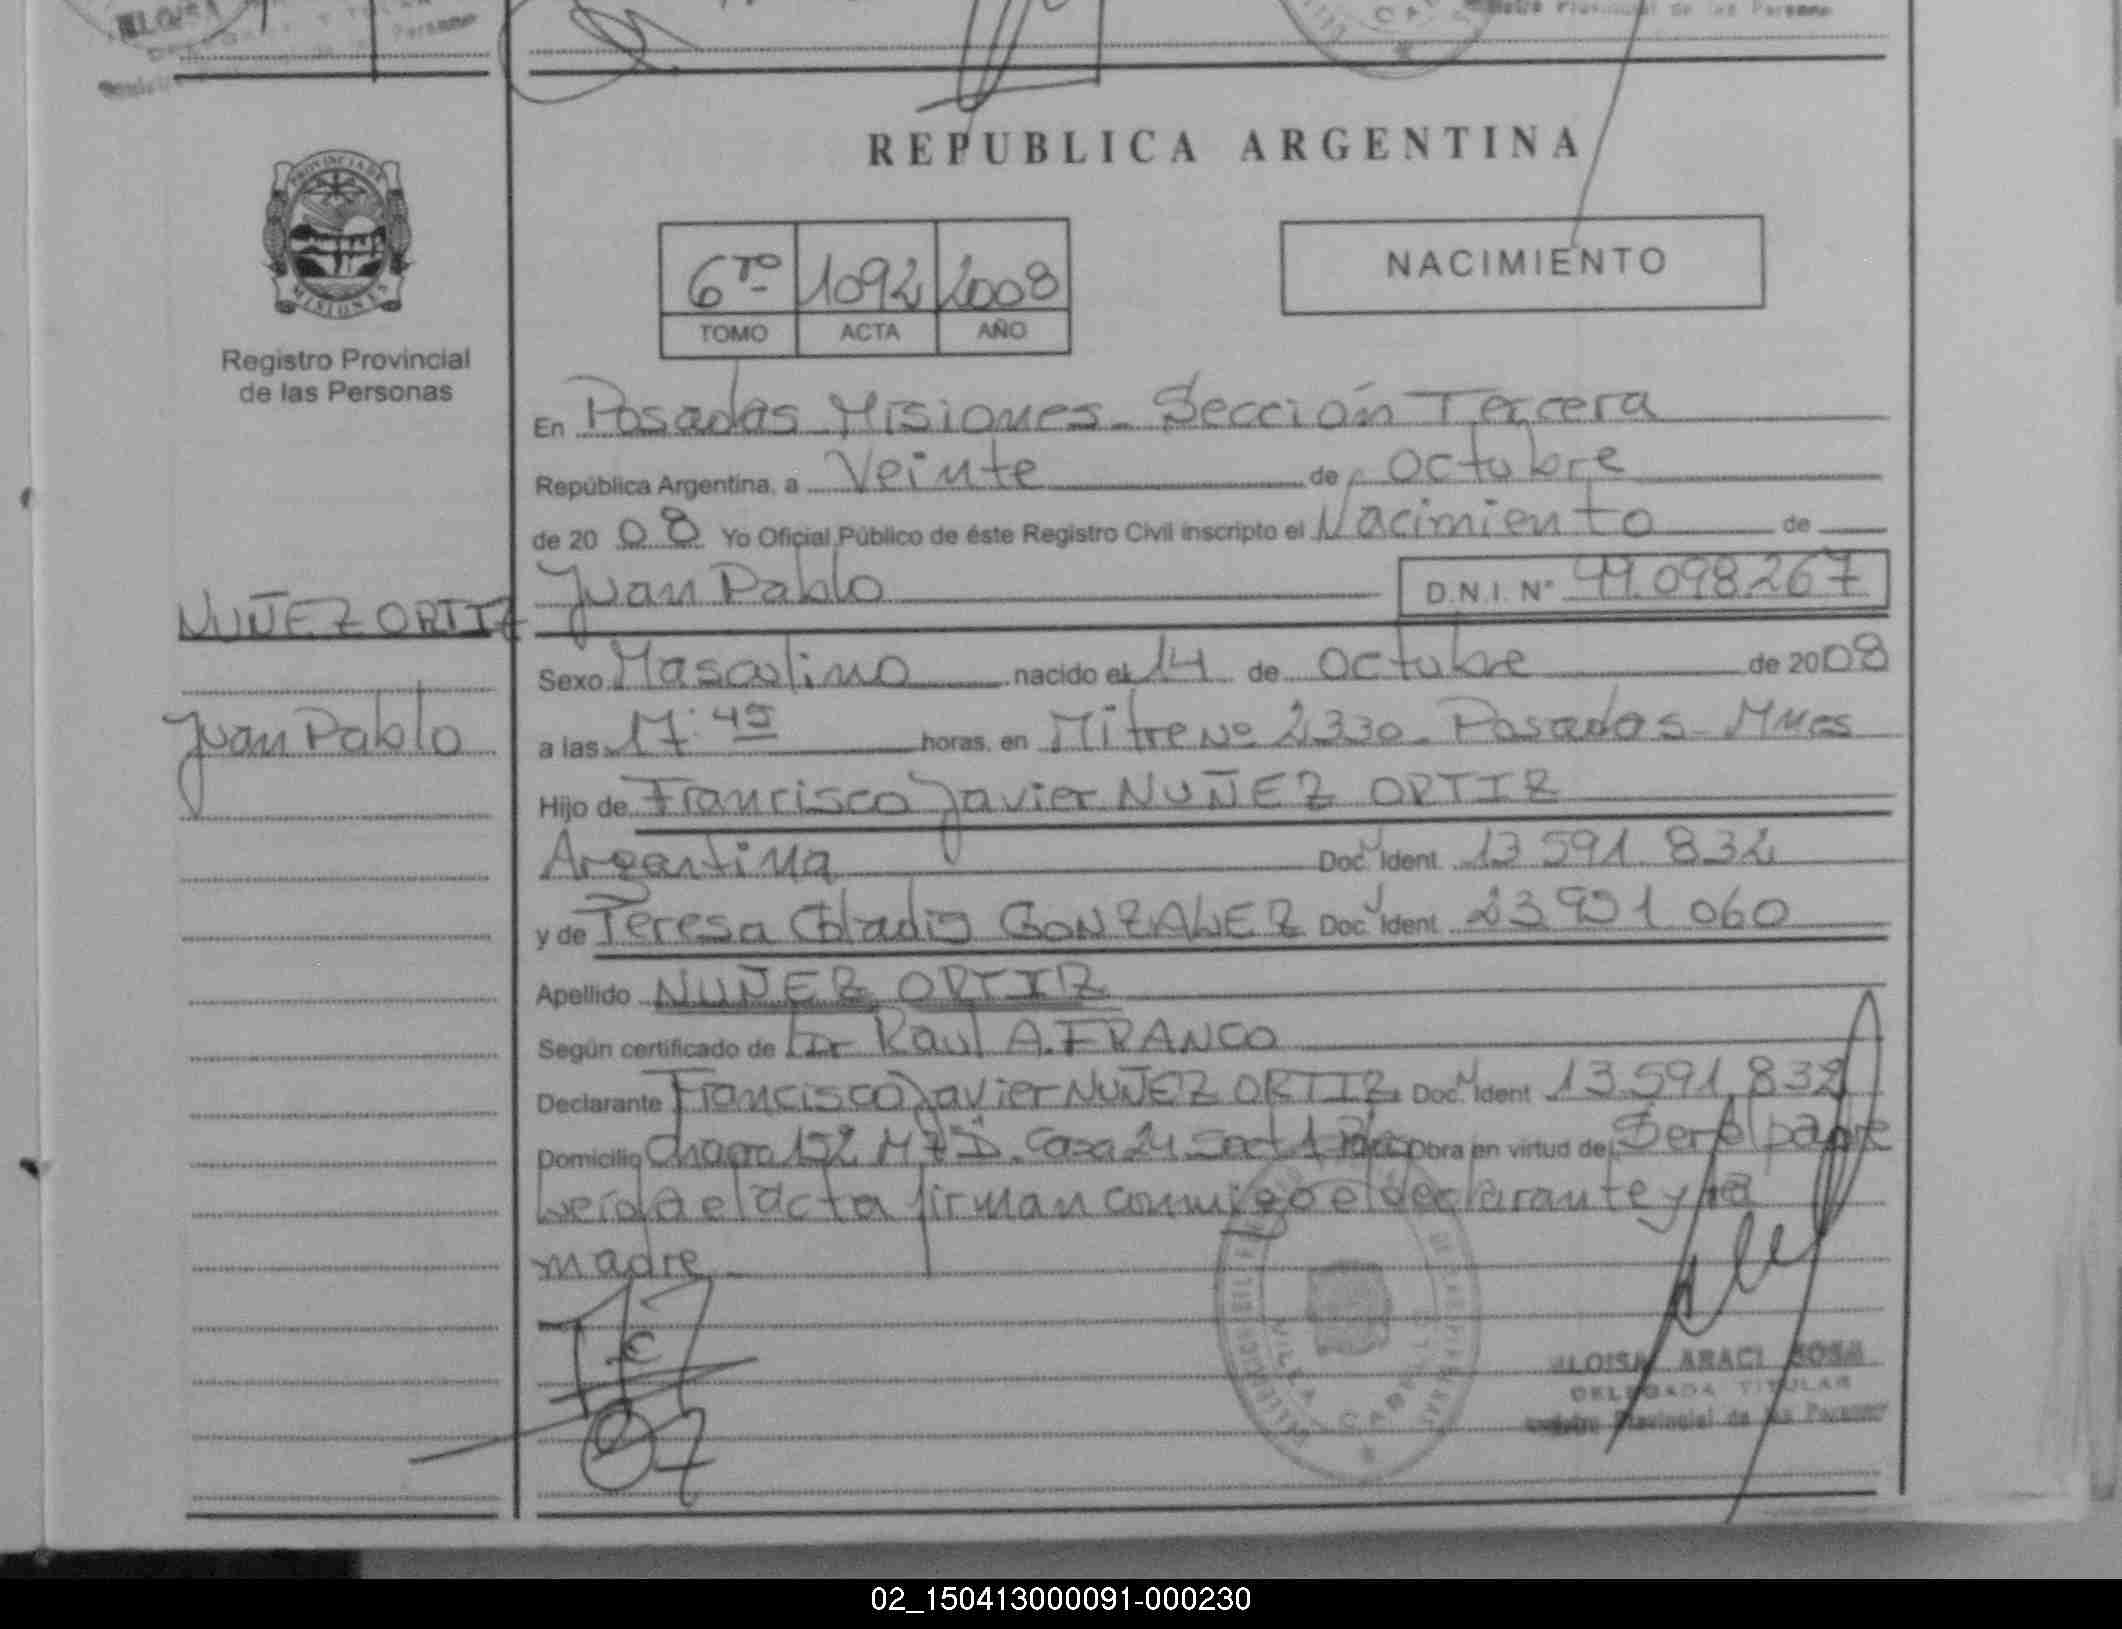 REPUBLICA ARGENTINA
PROVINCIA DE
MISIONES
Registro Provincial
de las Personas
6ro 1092 2008
TOMO ACTA AÑO
NACIMIENTO
En Posadas Misiones - Sección Tercera
República Argentina, a Veinte de Octubre
de 20 08 Yo Oficial Público de éste Registro Civil inscripto el Nacimiento de
NUÑEZ ORTIZ
Juan Pablo D.N.I. Nº 99.098.267
Sexo Masculino nacido el 14 de Octubre de 2008
Juan Pablo
a las 17:45 horas, en Mitre Nº 2330 - Posadas - Mnes
Hijo de Francisco Javier NUÑEZ ORTIZ
Argentina Doc. Ident. 13 591 832
y de Teresa Gladis GONZALEZ Doc. Ident. 23 901 060
Apellido NUÑEZ ORTIZ
Según certificado de Dr Raul A. FRANCO
Declarante Francisco Javier NUÑEZ ORTIZ Doc. Ident 13.591.832
Domicilio Chacra 152 M 7 Casa 24 Sect 1 Obra en virtud de Ser el padre
Leida el acta firman conmigo el declarante y la
madre
VILLA CABELLO
ELOISA ARACI SOSA
DELEGADA TITULAR
Registro Provincial de las Personas
02_150413000091-000230